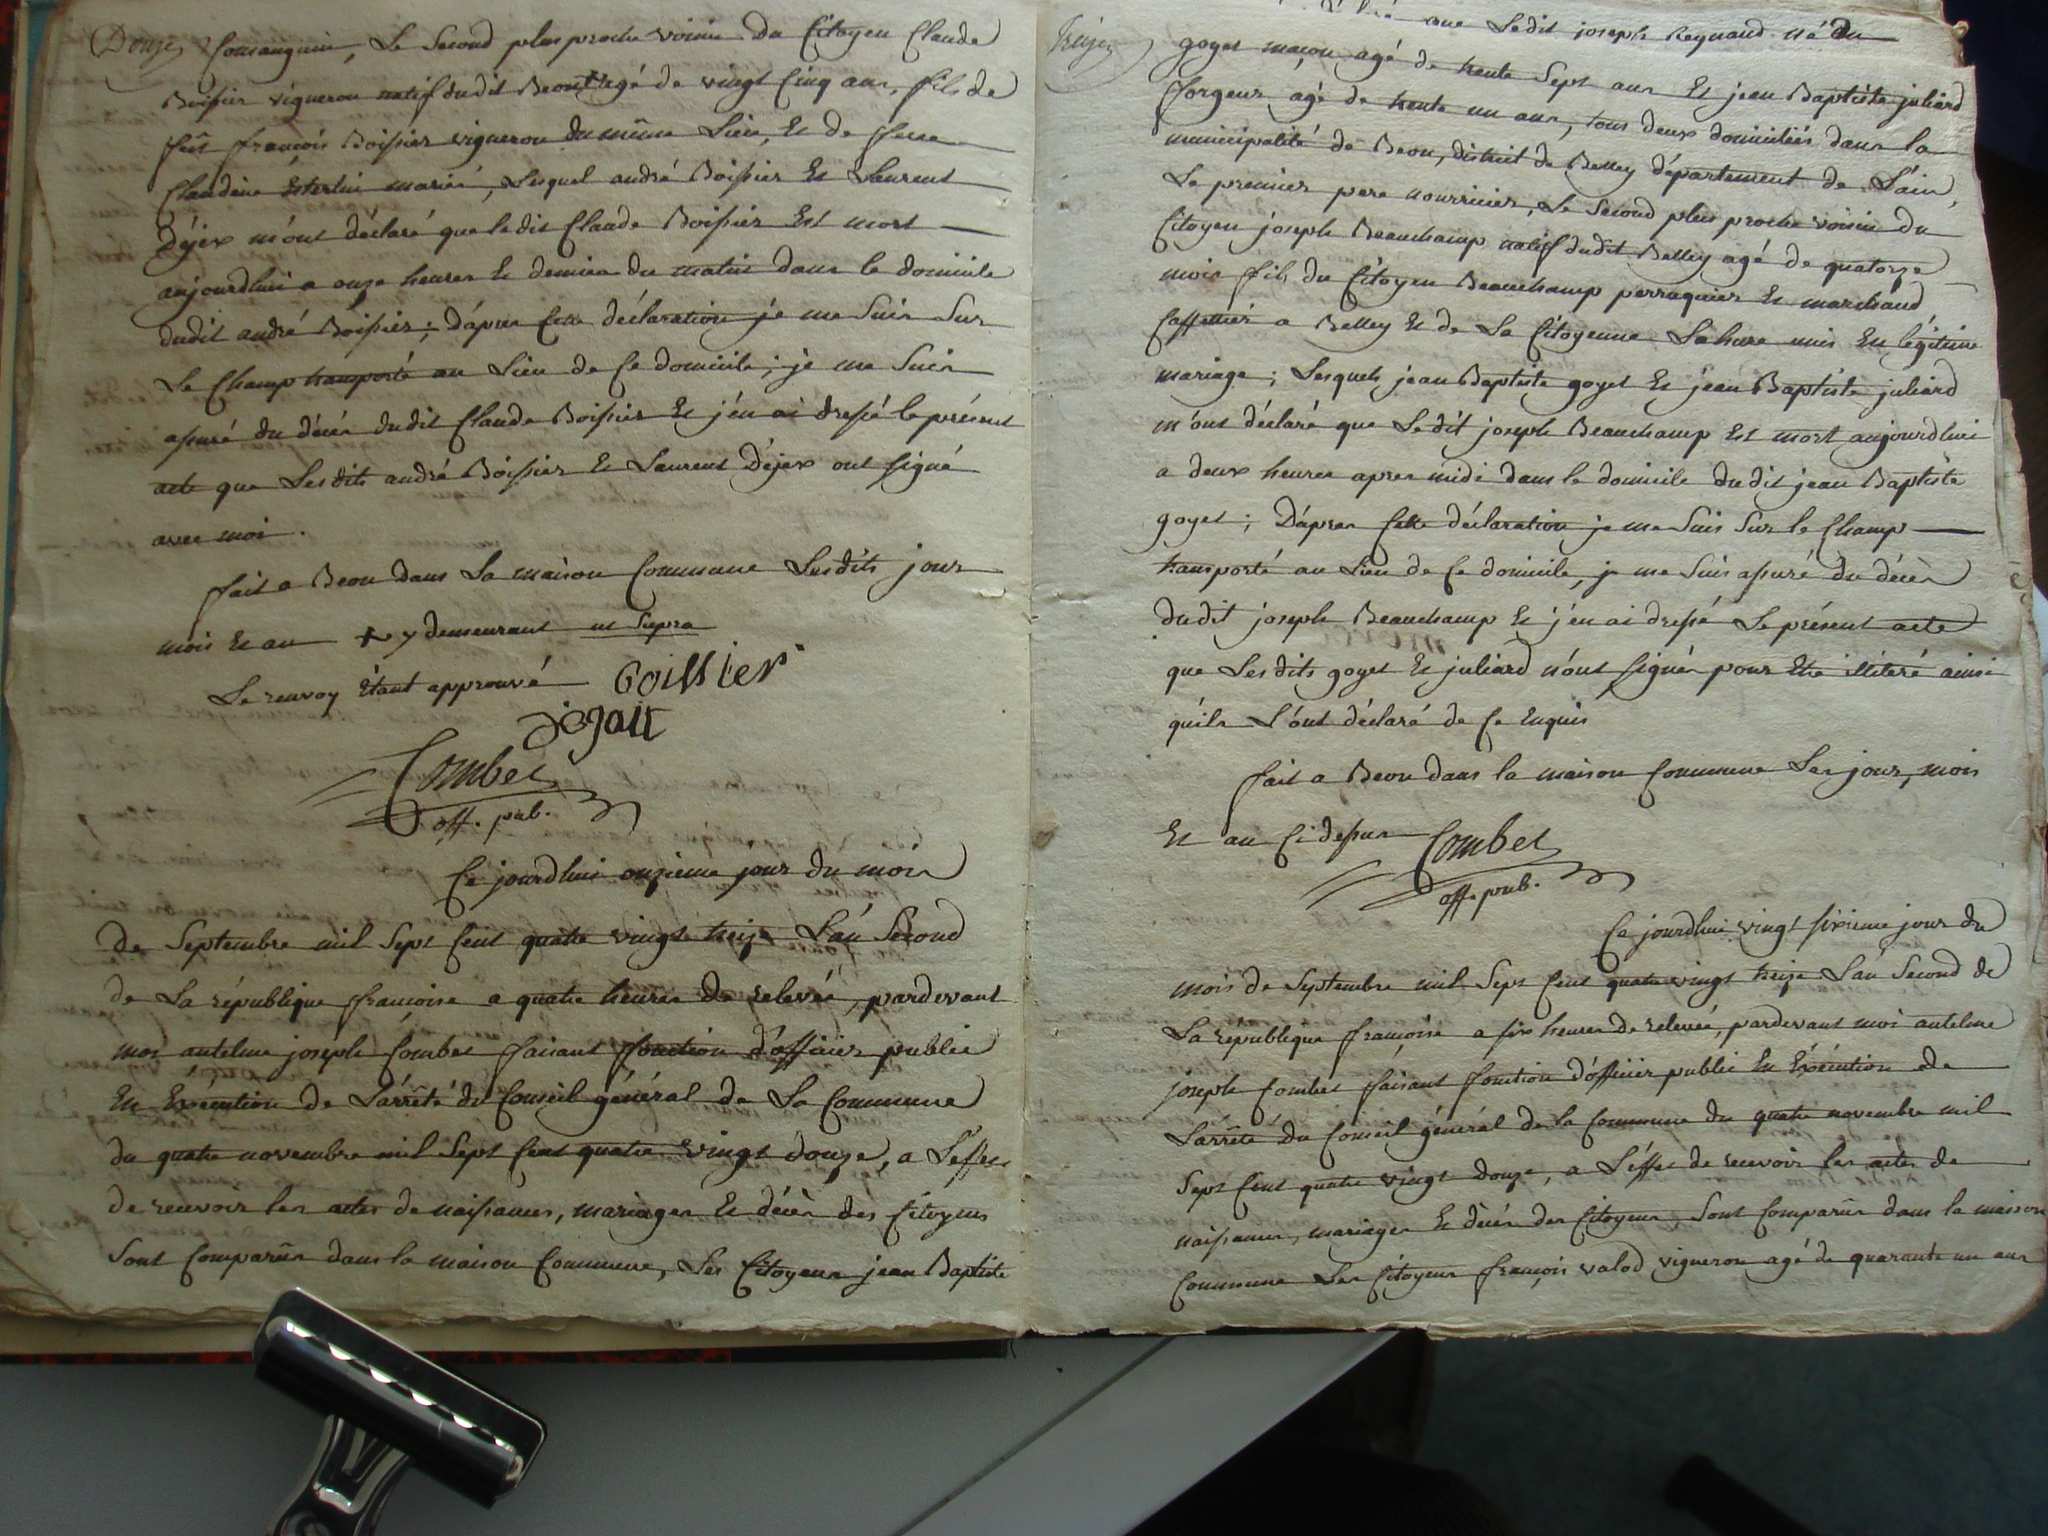 Douze
Consanguin, Le Second plus proche voisin du Citoyen Claude
Boissier vigneron natif dudit Beon agé de vingt Cinq ans, fils de
feû françois Boissier vigneron du même Lieu, Et de
Claudine mariés, Lesquel andré Boissier Et Laurent
Déjex m'ont déclaré que ledit Claude Boissier Est mort
aujourdhui a onze heures Et demies du matin dans le domicile
dudit andré Boissier; D'après Cette déclaration je me Suis Sur
Le Champ transporté au Lieu de Ce domicile; je me Suis
assuré du décès dudit Claude Boissier Et j'en ai dressé le présent
acte que Lesdits andré Boissier Et Laurent Déjex ont signé
avec moi.
fait a Beon dans La maison Commune Lesdits jour
mois Et an + y demeurant ut Supra
Le renvoy Etant approuvé Boissier
Combet
off. pub.
Ce jourdhui onzieme jour du mois
de Septembre mil Sept Cent quatre vingt treize L'an Second
de La république françoise a quatre heures de relevée, pardevant
moi antelme joseph Combet faisant fonction d'officier public
En Exécution de L'arrêté du Conseil général de La Commune
du quatre novembre mil Sept Cent quatre vingt douze, a L'effet
de recevoir les actes de naissances, mariages Et décès des Citoyens
Sont Comparûs dans la maison Commune, Les Citoyens jean Baptiste
Treize
que Ledit joseph Reynaud né du
goyet maçon agé de trente Sept ans Et jean Baptiste juliard
forgeur agé de trente un ans, tous deux domiciliés dans la
municipalité de Beon, district de Belley département de L'ain,
Le premier pere nourricier, Le Second plus proche voisin du
Citoyen joseph Beauchamp natif dudit Belley agé de quatorze
mois fils du Citoyen Beauchamp perruquier Et marchand
Caffettier a Belley Et de La Citoyenne Lahure unis En légitime
mariage; Lesquels jean Baptiste goyet Et jean Baptiste juliard
m'ont déclaré que Ledit joseph Beauchamp Est mort aujourdhui
a deux heures apres midi dans le domicile dudit jean Baptiste
goyet; D'après Cette déclaration je me Suis Sur le Champ
transporté au Lieu de Ce domicile, je me Suis assuré du décès
dudit joseph Beauchamp Et j'en ai dressé Le présent acte
que Lesdits goyet Et juliard n'ont signés pour Etre illiteré ainsi
qu'ils L'ont déclaré de Ce Enquis
fait a Beon dans la maison Commune Les jour, mois
Et an Ci dessus Combet
off. pub.
Ce jourdhui vingt sixieme jour du
mois de Septembre mil Sept Cent quatre vingt treize L'an Second de
La république françoise a six heures de relevée, pardevant moi antelme
joseph Combet faisant fonction d'officier public En Exécution de
L'arrêté du Conseil général de la Commune du quatre novembre mil
Sept Cent quatre vingt douze, a L'éffet de recevoir les actes de
naissances, mariages Et décès des Citoyens Sont Comparûs dans la maison
Commune Les Citoyens françois valod vigneron agé de quarante un ans